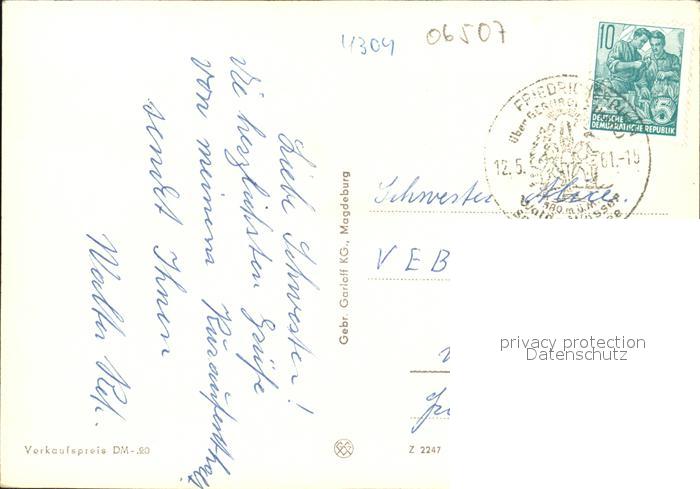 4304
06507
10
DEUTSCHE
DEMOKRATISCHE REPUBLIK
12.5. 61.-15
Liebe Schwester!
die herzlichsten Grüße
von meinem Kuraufenthalt
sendet Ihnen
Walter
Gebr. Garloff KG., Magdeburg
Schwester
V E B
privacy protection
Datenschutz
Verkaufspreis DM-.20
Z 2247